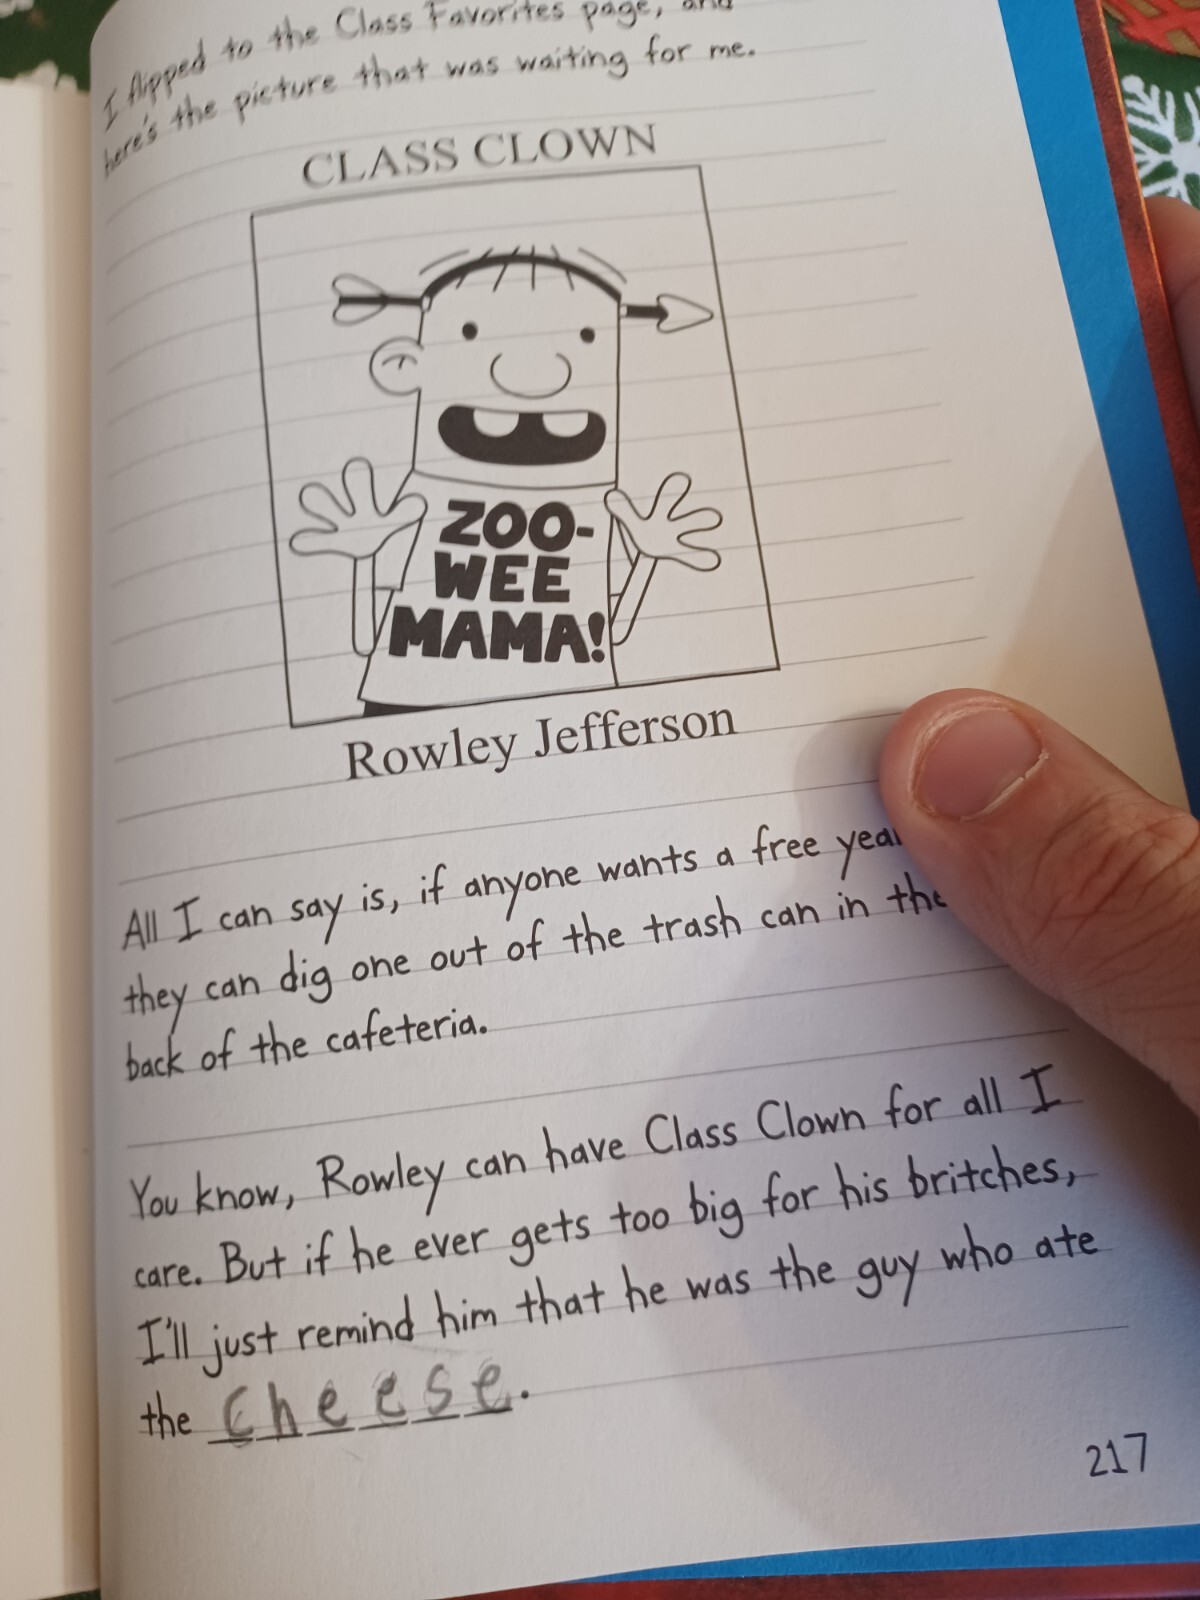 I flipped to the Class Favorites page, and
here's the picture that was waiting for me.
CLASS CLOWN
ZOO-
WEE
MAMA!
Rowley Jefferson
All I can say is, if anyone wants a free
they can dig one out of the trash can in the
back of the cafeteria.
You know, Rowley can have Class Clown for all I
care. But if he ever gets too big for his britches,
I'll just remind him that he was the guy who ate
the Cheese.
217